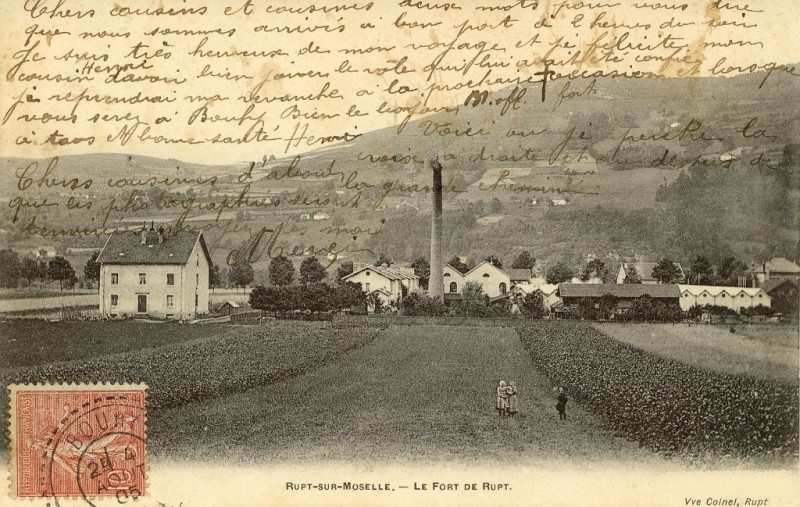 Chers cousins et cousines deux mots pour vous dire
que nous sommes arrivés à bon port à 2 heures du soir
je suis très heureux de mon voyage et je félicite mon
cousin Henri d'avoir bien le rôle qui lui avait été confié et lorsque
je reprendrai ma revanche à la prochaine occasion
vous serez à Bouhy Bien le bonjour M. off. fort
à tous et bonne santé Henri
Voici où je la
croix à droite et au de
la grande cheminée
Chers cousines d'abord
que les photographies seront
terminées envoyez les moi
Merci
BOUH
28
A
05
RUPT-SUR-MOSELLE. — LE FORT DE RUPT.
Vve Coinel, Rupt